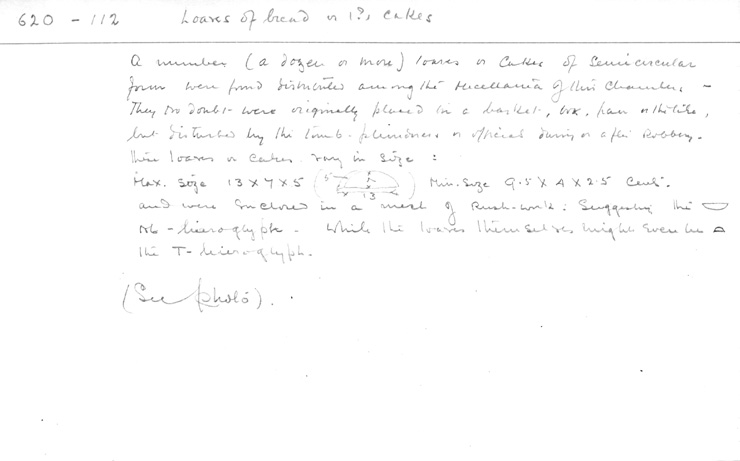 620 - 112 Loaves of bread or (?), cakes
A number (a dozen or more) loaves or Cakes of Semicircular
form were found distributed among the Miscellanea of this Chamber, -
They no doubt were originally placed in a basket, box, pan or the like,
but disturbed by the tomb-plunderers or officials during or after Robbery.
These loaves or cakes vary in size :
Max. Size 13 X 7 X 5 ( 5 7 13 ) Min. Size 9.5 X 4 X 2.5 Cent.
and were enclosed in a mesh of Rush-work : Suggesting the
Nb-hieroglyph. While the loaves themselves might even be
the T-hieroglyph.
(See photo).